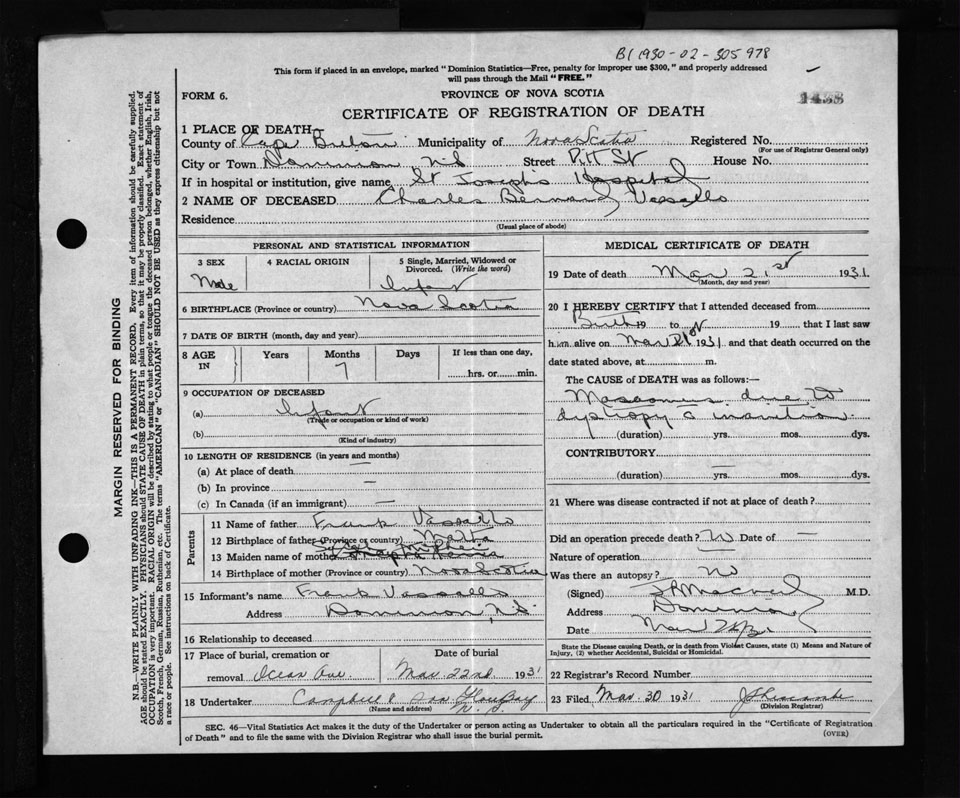 B1 1930-02-305978
This form if placed in an envelope, marked "Dominion Statistics—Free, penalty for improper use $300," and properly addressed
will pass through the Mail "FREE."
FORM 6.
PROVINCE OF NOVA SCOTIA
CERTIFICATE OF REGISTRATION OF DEATH
1 PLACE OF DEATH—
County of Cape Breton Municipality of Nova Scotia Registered No.
(For use of Registrar General only)
City or Town Dominion N.S. Street Pitt St House No.
If in hospital or institution, give name St Joseph's Hospital
2 NAME OF DECEASED Charles Bernard Vassallo
Residence
(Usual place of abode)
MARGIN RESERVED FOR BINDING
N.B.—WRITE PLAINLY WITH UNFADING INK—THIS IS A PERMANENT RECORD. Every item of information should be carefully supplied.
AGE should be stated EXACTLY. PHYSICIANS should STATE CAUSE OF DEATH in plain terms, so that it may be properly classified. Exact statement of
OCCUPATION is very important. RACIAL ORIGIN will be described by stating to what people or tongue the deceased person belonged, whether English, Irish,
Scotch, French, German, Russian, Ruthenian, etc. The terms "AMERICAN" or "CANADIAN" SHOULD NOT BE USED as they express citizenship but not
a race or people. See instructions on back of Certificate.
PERSONAL AND STATISTICAL INFORMATION
3 SEX
Male
4 RACIAL ORIGIN
5 Single, Married, Widowed or
Divorced. (Write the word)
Infant
6 BIRTHPLACE (Province or country) Nova Scotia
7 DATE OF BIRTH (month, day and year)
8 AGE
IN
Years
Months
7
Days
If less than one day,
hrs. or min.
9 OCCUPATION OF DECEASED
(a) Infant
(Trade or occupation or kind of work)
(b)
(Kind of industry)
10 LENGTH OF RESIDENCE (in years and months)
(a) At place of death —
(b) In province —
(c) In Canada (if an immigrant) —
Parents
11 Name of father Frank Vassallo
12 Birthplace of father (Province or country) Malta
13 Maiden name of mother
14 Birthplace of mother (Province or country) Nova Scotia
15 Informant's name Frank Vassallo
Address Dominion, N.S.
16 Relationship to deceased
17 Place of burial, cremation or
removal Ocean Ave
Date of burial
Mar 22nd 1931
18 Undertaker Campbell & Son Glace Bay
N.S.
(Name and address)
MEDICAL CERTIFICATE OF DEATH
19 Date of death Mar 21st 1931
(Month, day and year)
20 I HEREBY CERTIFY that I attended deceased from
Birth 19 to 19 that I last saw
him alive on Mar 21st 1931 and that death occurred on the
date stated above, at m.
The CAUSE of DEATH was as follows:—
Marasmus due to
dystropy c inanition
(duration) yrs. mos. dys.
CONTRIBUTORY
(duration) — yrs. mos. dys.
21 Where was disease contracted if not at place of death?
Did an operation precede death? No Date of —
Nature of operation
Was there an autopsy? No
(Signed) M.D.
Address Dominion
Date
State the Disease causing Death, or in death from Violent Causes, state (1) Means and Nature of
Injury, (2) whether Accidental, Suicidal or Homicidal.
22 Registrar's Record Number
23 Filed Mar. 30 1931
(Division Registrar)
SEC. 46—Vital Statistics Act makes it the duty of the Undertaker or person acting as Undertaker to obtain all the particulars required in the "Certificate of Registration
of Death" and to file the same with the Division Registrar who shall issue the burial permit.
(OVER)